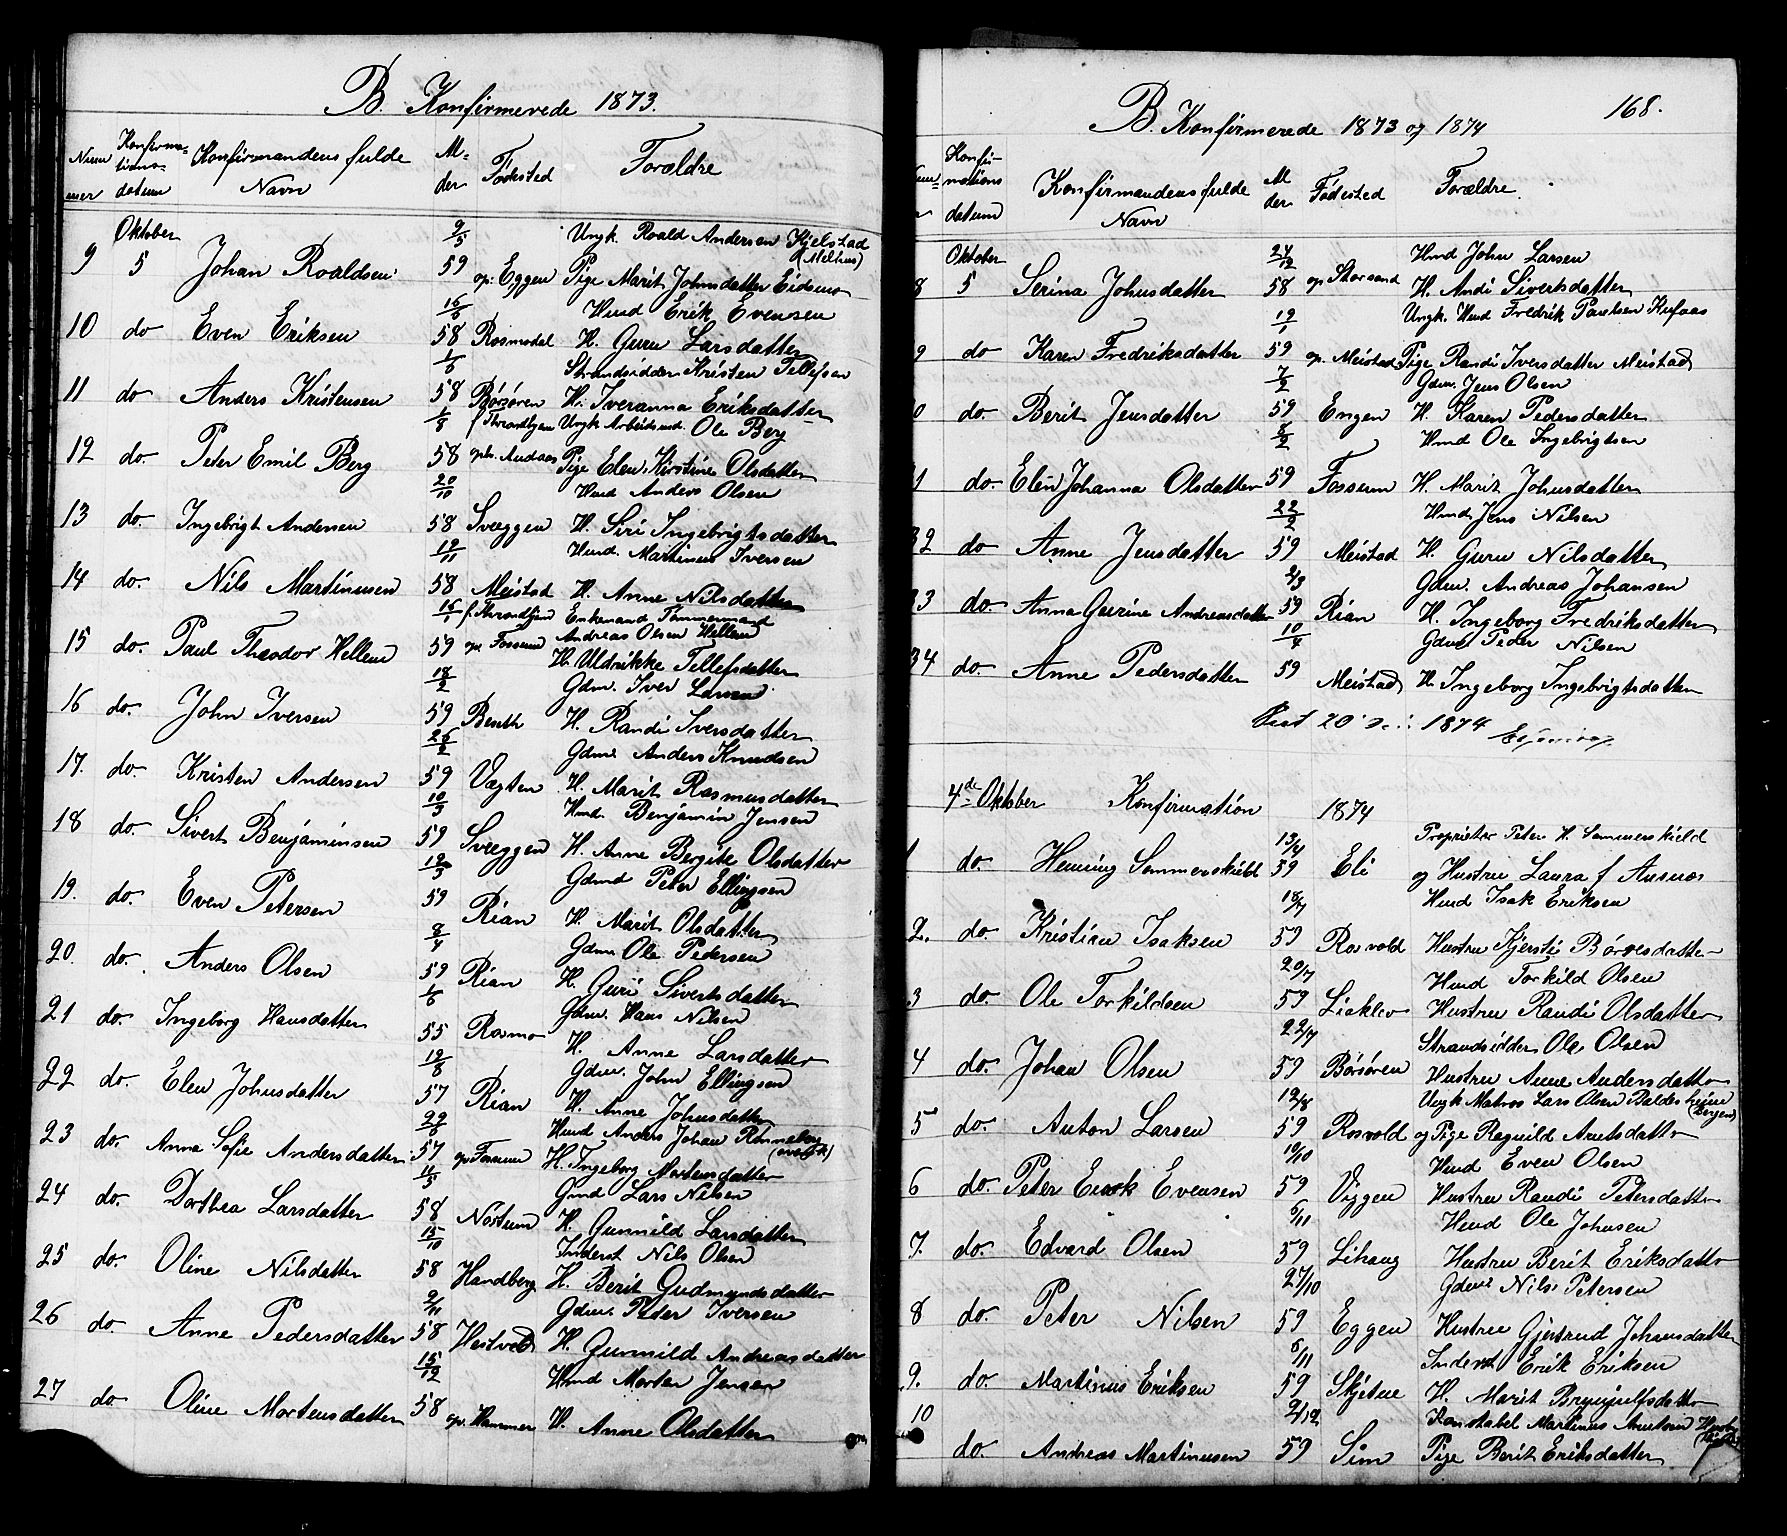 B. Konfirmerede 1873.
Num-mer Konfirma-tions-datum Konfirmandens fulde Navn M- der Fødested Forældre
Oktober 9/5 Ungk. Roald Andersen Kjelstad (Melhus)
9 5 Johan Roaldsen 59 op. Eggen Pige Marit Johnsdatter Eidsmo
16/6 Hmd Erik Evensen
10 do Even Eriksen 58 Rosmodal H. Guru Larsdatter
1/6 Strandsidder Kristen Tellefsen
11 do Anders Kristensen 58 Børsøren H. Iveranna Eriksdatter
1/8 f. Throndhjem Ungk Arbeidsmd. Ole Berg
12 do. Peter Emil Berg 58 oph. Andaas Pige Elen Kirstine Olsdatter
20/10 Hmd Anders Olsen
13 do. Ingebrigt Andersen 58 Svæggen H. Siri Ingebrigtsdatter
19/11 Hmd. Martinus Iversen
14 do. Nils Martinusen 58 Meistad H. Anne Nilsdatter
16/1 f. Throndhjem Enkemand Tømmermand
Andreas Olsen Hellem
15 do. Paul Theodor Hellem 59 op. Fossum H. Uldrikke Tellefsdatter
18/2 Gdm. Iver Larsen
16 do. John Iversen 59 Benth H. Randi Iversdatter
25/2 Gdm. Anders Knudsen
17. do. Kristen Andersen 59 Vegten H. Marit Rasmusdatter
10/3 Hmd. Benjamin Jensen
18 do. Sivert Benjaminsen 59 Svæggen H. Anne Bergite Olsdatter
12/3 Gdmd Peter Ellingsen
19. do. Even Petersen 59 Rian H. Marit Olsdatter
8/4 Gdm. Ole Pedersen
20. do. Anders Olsen 59 Rian H. Guri Sivertsdatter
1/6 Gdm. Hans Nilsen
21 do. Ingeborg Hansdatter 55 Rosmo H. Anne Larsdatter
19/8 Gdm. John Ellingsen
22 do. Elen Johnsdatter 57 Rian H. Anne Johnsdatter
Hmd Anders Johan Ronneberg
23 do. Anna Sofie Andersdatter 57 op Fossum H. Ingeborg Mortensdatter
11/5 Gmd Lars Nilsen
24 do. Dorthea Larsdatter 58 Nortum H. Gunnild Larsdatter
15/10 Inderst Nils Olsen
25 do. Oline Nilsdatter 58 Handberg H. Berit Gudmundsdatter
9/11 Gdm. Peter Iversen
26 do. Anne Pedersdatter 58 H. Gunnild Andreasdatter
15/12 Hmd Morten Jensen
27 do. Oline Mortensdatter 58 op. Hammer H. Anne Olsdatter
168.
B. Konfirmerede 1873 og 1874
Konfir-mations datum Konfirmandens fulde Navn M der Fødested Forældre.
Oktober 24/12 Hmd John Larsen
8 5 Serina Johnsdatter 58 op Storsand H. Andi Sivertsdatter
19/1 Ungk. Hmd Fredrik Paulsen Hufaas
9 do Karen Fredriksdatter 59 op. Meistad Pige Randi Iversdatter Meistad
7/2 Gdm. Jens Olsen
0 do. Berit Jensdatter 59 Engen H. Karen Pedersdatter
8/2 Hmd Ole Ingebrigtsen
1 do. Elen Johanna Olsdatter 59 Fossum H. Marit Johnsdatter
22/2 Hmd Jens Nilsen
32 do Anne Jensdatter 59 Meistad H. Guru Nilsdatter
2/3 Gdm. Andreas Johansen
33 do. Anna Gurine Andreasdatter 59 Rian H. Ingeborg Fredriksdatter
10/4 Gdmd Peder Nilsen
34 do. Anne Pedersdatter 59 Meistad H. Ingeborg Ingebrigtsdatter
20 1874
4de Oktober Konfirmation 1874
13/4 Proprietær Peter H. Sommerskield
1 do. Henning Sommerskield 59 Eli og Hustru Laura f Ausnes
18/7 Hmd Isak Eriksen
2. do. Kristian Isaksen 59 Rosvold Hustru Kjersti Børresdatter
20/7 Hmd Torkild Olsen
3 do. Ole Torkildsen 59 Lieklev Hustru Randi Olsdatter
22/7 Strandsidder Ole Olsen
4 do. Johan Olsen 59 Børsøren Hustru Anne Andersdatter
12/8 Ungk Matros Lars Olsen Baldersheim (Bergen)
5 do. Anton Larsen 59 Rosvold og Pige Ragnild Arntsdatter
10/10 Hmd Even Olsen
6 do. Peter Evensen 59 Viggen Hustru Randi Petersdatter
6/11 Hmd Ole Johnsen
7. do. Edvard Olsen 59 Lihaug Hustru Berit Eriksdatter
27/10 Gdm. Nils Petersen
8 do. Peter Nilsen 59 Eggen Hustru Gjertrud Johnsdatter
6/11 Inderst Erik Eriksen
9. do. Martinus Eriksen 59 Skjetne H. Marit Brynjulfsdatter
2/12 Konstabel Martinus Arntsen
10 do. Andreas Martinusen 59 Sim Pige Berit Eriksdatter